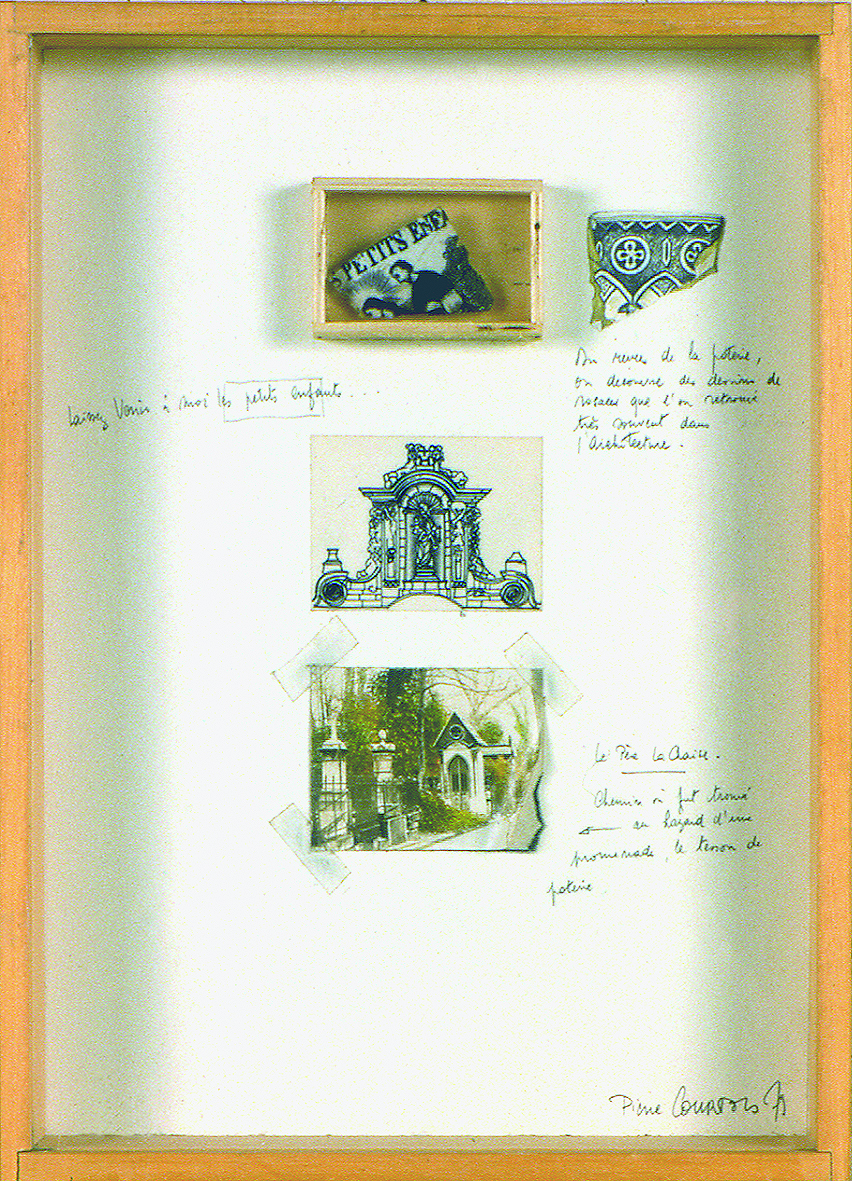 S PETITS ENFA
Au revers de la poterie,
on découvre des dessins de
rosaces que l'on retrouve
très souvent dans
l'Architecture.
Laissez Venir à moi les petits enfants...
Le Père La Chaise.
Chemin où fut trouvé
au hazard d'une
promenade, le tesson de
poterie
Pierre Courtois